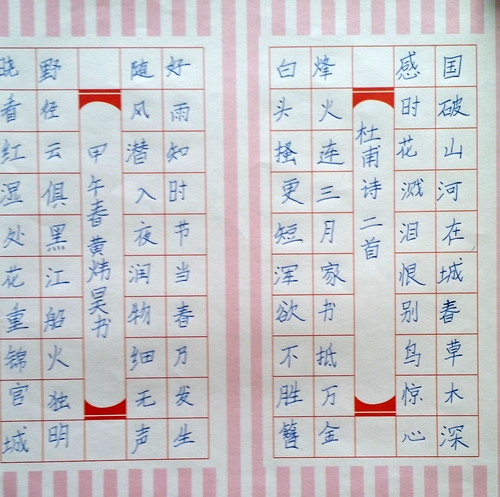 国破山河在城春草木深
感时花溅泪恨别鸟惊心
杜甫诗二首
烽火连三月家书抵万金
白头搔更短浑欲不胜簪
好雨知时节当春乃发生
随风潜入夜润物细无声
甲午春黄炜昊书
野径云俱黑江船火独明
晓看红湿处花重锦官城